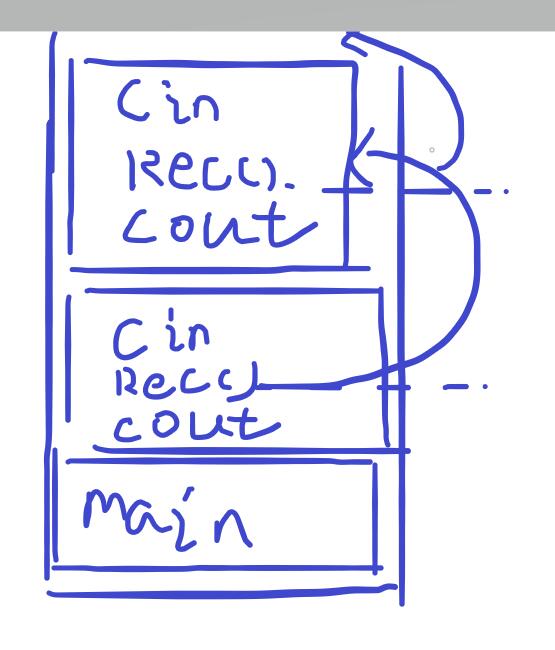 Cin
Rec().
cout
Cin
Rec()
cout
main